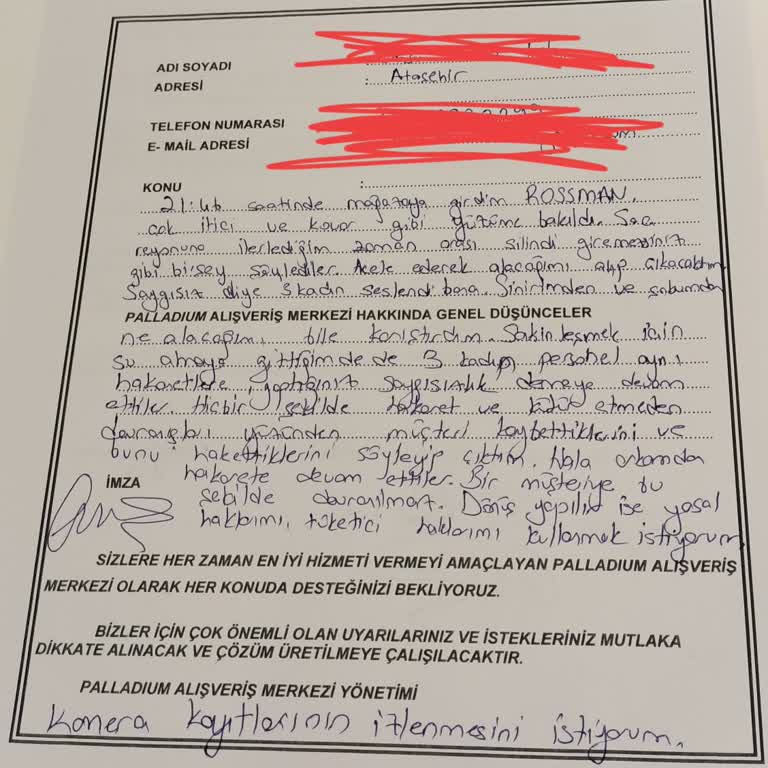 ADI SOYADI
ADRESİ : Ataşehir
TELEFON NUMARASI
E- MAİL ADRESİ
KONU :
21:46 saatinde mağazaya girdim ROSSMAN.
çok itici ve kovar gibi yüzüme bakıldı. Saç
reyonuna ilerlediğim zaman orası silindi giremezsiniz
gibi birşey söylediler. Acele ederek alacağımı alıp çıkacaktım
Saygısız diye 3 kadın seslendi bana. Sinirimden ve
PALLADIUM ALIŞVERİŞ MERKEZİ HAKKINDA GENEL DÜŞÜNCELER
ne alacağımı bile karıştırdım. Sakinleşmek için
su almaya gittiğimde de 3 kadın personel aynı
hakaretlere, yaptığınız saygısızlık demeye devam
ettiler. Hiçbir şekilde hakaret ve küfür etmeden
davranışları yüzünden müşteri kaybettiklerini ve
bunu hakettiklerini söyleyip çıktım. Hala arkamda
İMZA hakarete devam ettiler. Bir müşteriye bu
şekilde davranılmaz. Dönüş yapılmaz ise yasal
haklarımı, tüketici haklarımı kullanmak istiyorum.
SİZLERE HER ZAMAN EN İYİ HİZMETİ VERMEYİ AMAÇLAYAN PALLADIUM ALIŞVERİŞ
MERKEZİ OLARAK HER KONUDA DESTEĞİNİZİ BEKLİYORUZ.
BİZLER İÇİN ÇOK ÖNEMLİ OLAN UYARILARINIZ VE İSTEKLERİNİZ MUTLAKA
DİKKATE ALINACAK VE ÇÖZÜM ÜRETİLMEYE ÇALIŞILACAKTIR.
PALLADIUM ALIŞVERİŞ MERKEZİ YÖNETİMİ
Kamera kayıtlarının izlenmesini istiyorum.